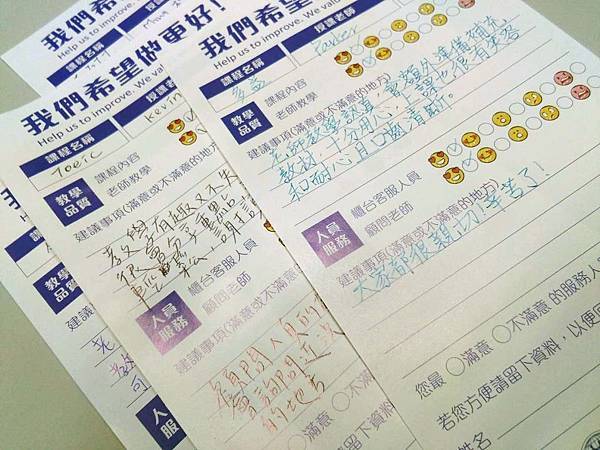 我們希望做更好!
Help us to improve. We val
課程名稱
授課老師
我們希望做更好!
Help us to improve. We valu
課程名稱
授課老師
多益
Parker
教學品質
課程內容
老師教學
建議事項(滿意或不滿意的地方)
老師教學認真,會額外準備補充
教材,十分用心,上課也很有笑容
和耐心且口齒清晰。
人員服務
櫃台客服人員
顧問老師
建議事項(滿意或不滿意的地方)
大家都很親切!辛苦了!
您最 ○滿意 ○不滿意 的服務人
若您方便請留下資料,以便
姓名
我們希望做更好!
Help us to improve. We va
課程名稱
授課老師
Toeic
Kevin
教學品質
課程內容
老師教學
建議事項(滿意或不滿意的地方)
教學有趣又不失
重點
人員服務
櫃台客服人員
顧問老師
建議事項(滿意或不
顧問人員的
會詢問近況
的地方
滿意 ○不滿
請留下資料
課程名
教學品質
建議
人
服